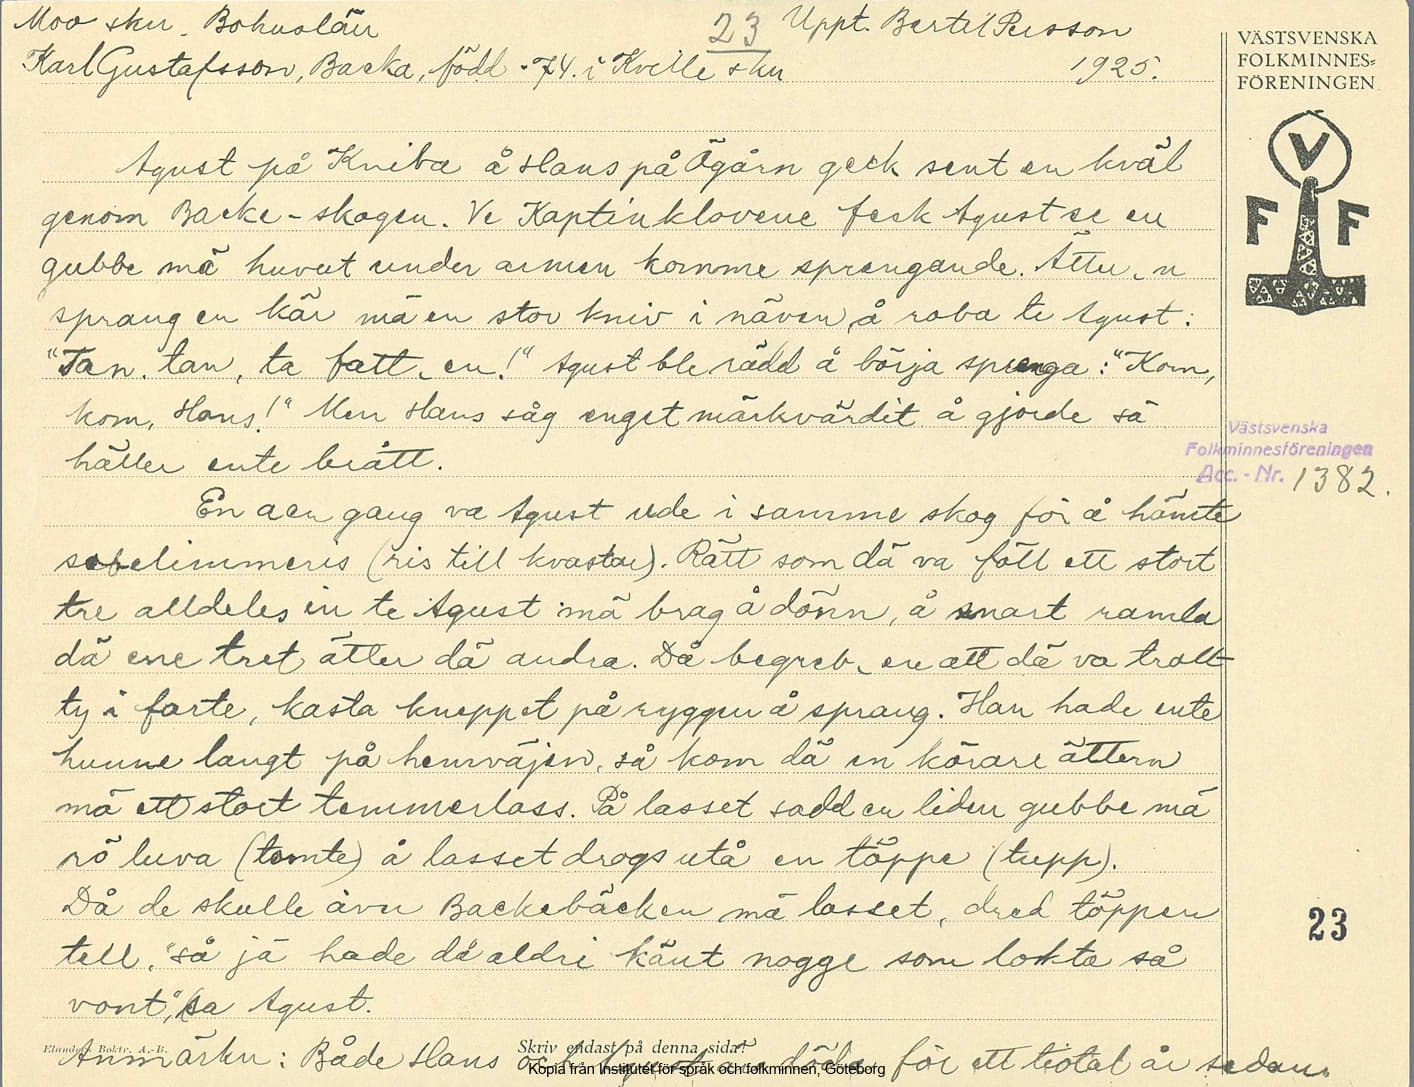 Moo skn. Bohuslän
23
Uppt. Bertil Persson
Karl Gustafsson, Backa, född -74. i Kville skn
1925.
VÄSTSVENSKA
FOLKMINNES=
FÖRENINGEN
V
F F
Agust på Kniba å Hans på Ögårn geck sent en kväl
genom Backe-skogen. Ve Kaptinklovene feck Agust se en
gubbe mä huvut under armen komme sprengande. Ätter, n
sprang en kär mä en stor kniv i näven, å roba te Agust:
"Tan, tan, ta fatt, en!" Agust ble rädd å börja sprenga: "Kom,
kom, Hans!" Men Hans såg enget märkvärdit å gjorde sä
häller ente brått.
Västsvenska
Folkminnesföreningen
Acc.-Nr. 1382.
En aen gang va Agust ude i samme skog för å hämte
sobelimmeris (ris till kvastar). Rätt som dä va föll ett stort
tre alldeles in te Agust mä brag å dönn, å snart ramla
dä ene tret ätter dä andra. Då begreb, en att dä va trolt-
ty i farte, kasta kneppet på ryggen å sprang. Han hade ente
hunne langt på hemväjen, så kom dä en körare ättern
mä ett stort temmerlass. På lasset sadd en liden gubbe mä
rö luva (tomte) å lasset drogs utå en töppe (tupp).
Då de skulle åvn Backebäcken mä lasset, dred töppen
tell, "så jä hade dä aldri känt nogge som lokta så
vont", sa Agust.
23
Elanders Boktr. A.-B.
Skriv endast på denna sida!
Anmärkn: Både Hans och Agust äro döda för ett tiotal år sedan.
Kopia från Institutet för språk och folkminnen, Göteborg